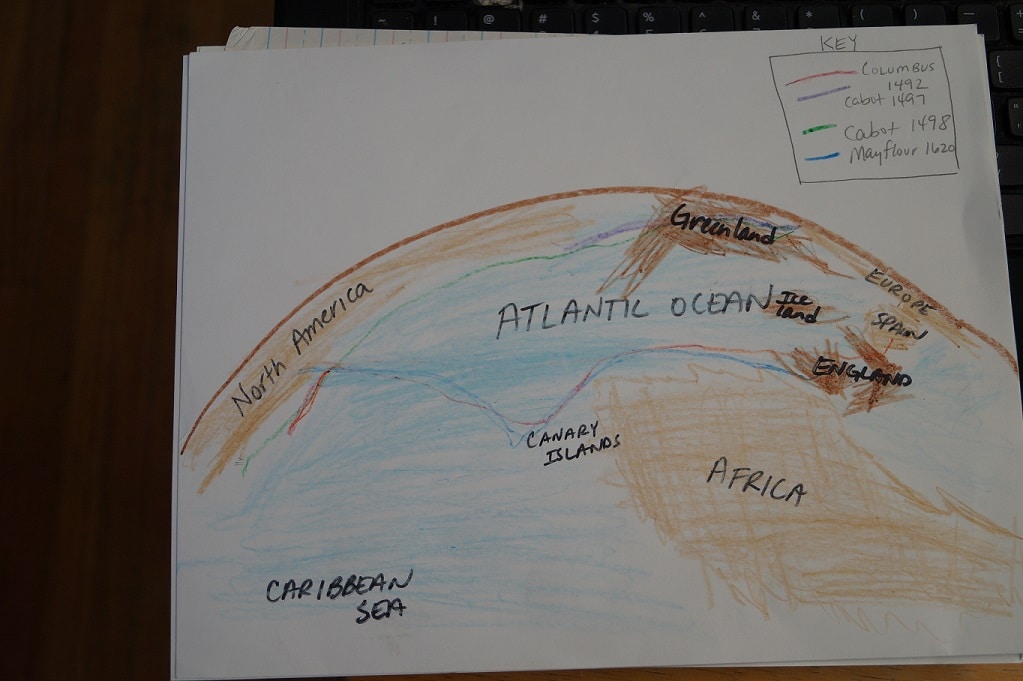 KEY
COLUMBUS
1492
Cabot 1497
Cabot 1498
Mayflour 1620
Greenland
EUROPE
North America
ATLANTIC OCEAN
Ice
land
SPAIN
ENGLAND
CANARY
ISLANDS
AFRICA
CARIBBEAN
SEA
~ ! @ # $ % ^ & * ( ) — +